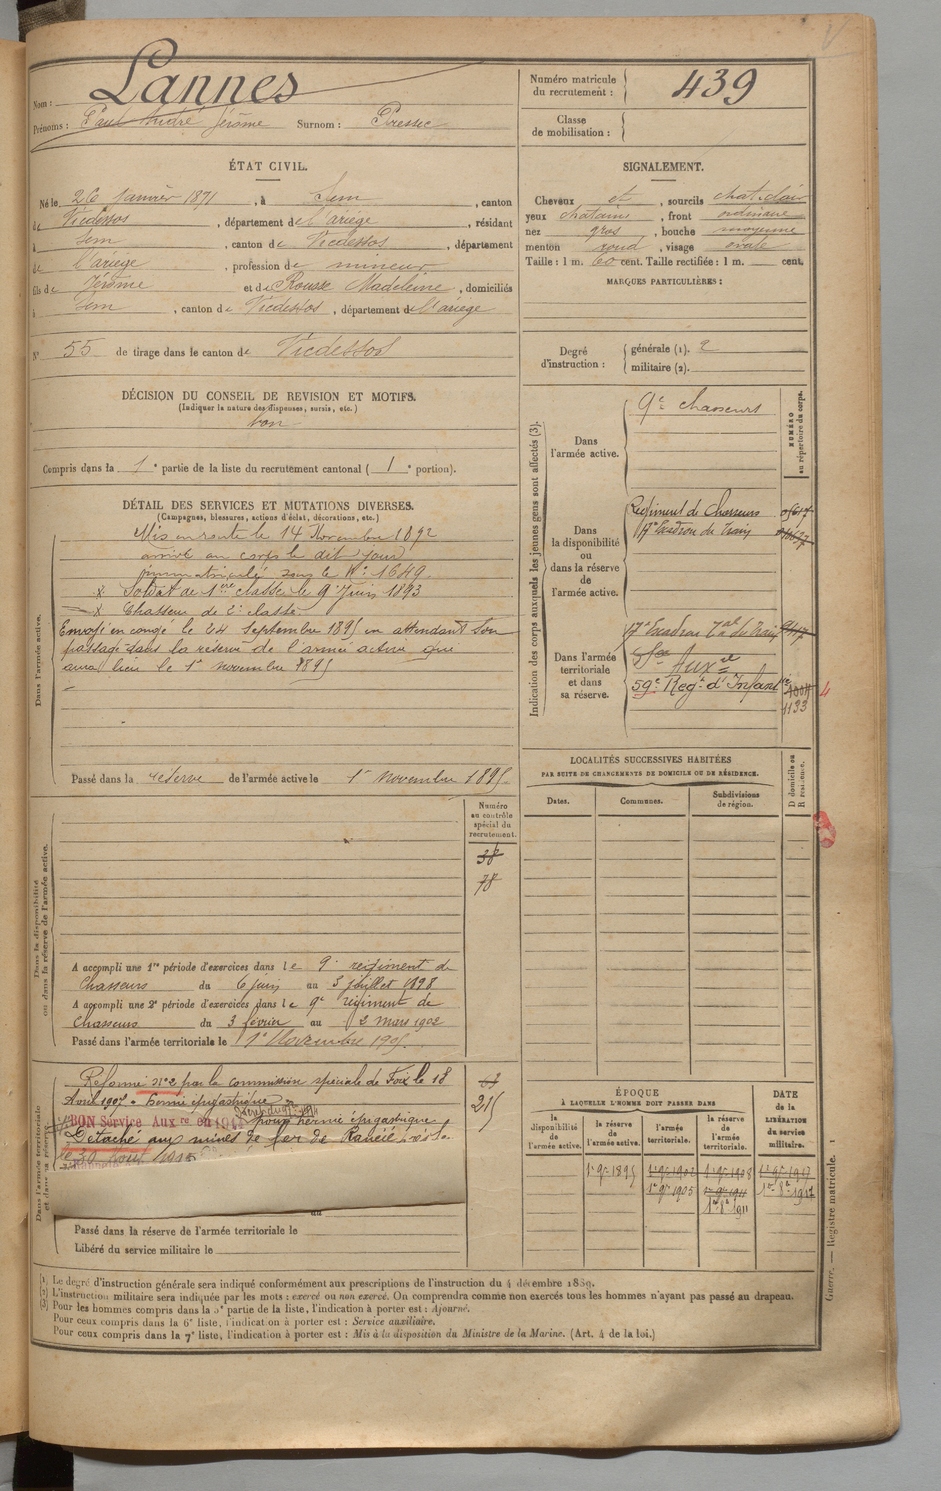 Nom : Lannes
Prénoms : Paul André Jérôme Surnom : Pressec
Numéro matricule du recrutement : 439
Classe de mobilisation :
ÉTAT CIVIL.
Né le 26 Janvier 1871, à Sem, canton
de Vicdessos, département de l'ariège, résidant
à Sem, canton de Vicdessos, département
de l'ariège, profession de mineur
fils de Jérôme et de Rousse Madeleine, domiciliés
à Sem, canton de Vicdessos, département de l'ariège
N° 55 de tirage dans le canton de Vicdessos
SIGNALEMENT.
Cheveux et, sourcils chat. clair
yeux chatains, front ordinaire
nez gros, bouche moyenne
menton rond, visage ovale
Taille : 1 m. 60 cent. Taille rectifiée : 1 m. cent.
MARQUES PARTICULIÈRES :
Degré d'instruction : générale (1). 2
militaire (2).
DÉCISION DU CONSEIL DE REVISION ET MOTIFS.
(Indiquer la nature des dispenses, sursis, etc.)
bon
Compris dans la 1e partie de la liste du recrutement cantonal ( 1e portion).
DÉTAIL DES SERVICES ET MUTATIONS DIVERSES.
(Campagnes, blessures, actions d'éclat, décorations, etc.)
Dans l'armée active.
Mis en route le 14 Novembre 1892
arrivé au corps le dit jour
immatriculé sous le N° 1649
x Soldat de 1ère classe le 9 Juin 1893
x Chasseur de 2e classe
Envoyé en congé le 24 Septembre 1895 en attendant son
passage dans la réserve de l'armée active qui
aura lieu le 1er novembre 1895
Passé dans la réserve de l'armée active le 1er novembre 1895
Dans la disponibilité ou dans la réserve de l'armée active.
Numéro au contrôle spécial du recrutement.
38
78
A accompli une 1re période d'exercices dans le 9e régiment de
Chasseurs du 6 juin au 3 Juillet 1898
A accompli une 2e période d'exercices dans le 9e régiment de
Chasseurs du 3 février au 2 mars 1902
Passé dans l'armée territoriale le 1er Novembre 1905
Dans l'armée territoriale et dans sa réserve
Réformé N° 2 par la commission spéciale de Foix le 18
Avril 1907 - hernie épigastrique
BON Service Aux re
pour hernie épigastrique
Détaché aux mines de fer de Rancié
le 30 Août 1915
63
215
au
Passé dans la réserve de l'armée territoriale le
Libéré du service militaire le
Indication des corps auxquels les jeunes gens sont affectés (3).
NUMÉRO au répertoire du corps.
Dans l'armée active.
9e chasseurs
Dans la disponibilité ou dans la réserve de l'armée active.
Régiment de Chasseurs
17e Escadron du Train
Dans l'armée territoriale et dans sa réserve.
17e Escadron Tal du Train
Sce Auxre
59e Regt d'Infant ie
1133
4
LOCALITÉS SUCCESSIVES HABITÉES
PAR SUITE DE CHANGEMENTS DE DOMICILE OU DE RÉSIDENCE.
Dates. Communes. Subdivisions de région. D domicile ou R résidence.
ÉPOQUE
À LAQUELLE L'HOMME DOIT PASSER DANS
la disponibilité de l'armée active. la réserve de l'armée active. l'armée territoriale. la réserve de l'armée territoriale. DATE de la LIBÉRATION du service militaire.
1er 9bre 1895 1er 9bre 1902 1er 9bre 1908 1er 9bre 1917
1er 9bre 1905 1er 9bre 1911 1er 8bre 1917
1er 8bre 1911
Guerre. — Registre matricule. 1
(1) Le degré d'instruction générale sera indiqué conformément aux prescriptions de l'instruction du 4 décembre 1889.
(2) L'instruction militaire sera indiquée par les mots : exercé ou non exercé. On comprendra comme non exercés tous les hommes n'ayant pas passé au drapeau.
(3) Pour les hommes compris dans la 3e partie de la liste, l'indication à porter est : Ajourné.
Pour ceux compris dans la 6e liste, l'indication à porter est : Service auxiliaire.
Pour ceux compris dans la 7e liste, l'indication à porter est : Mis à la disposition du Ministre de la Marine. (Art. 4 de la loi.)